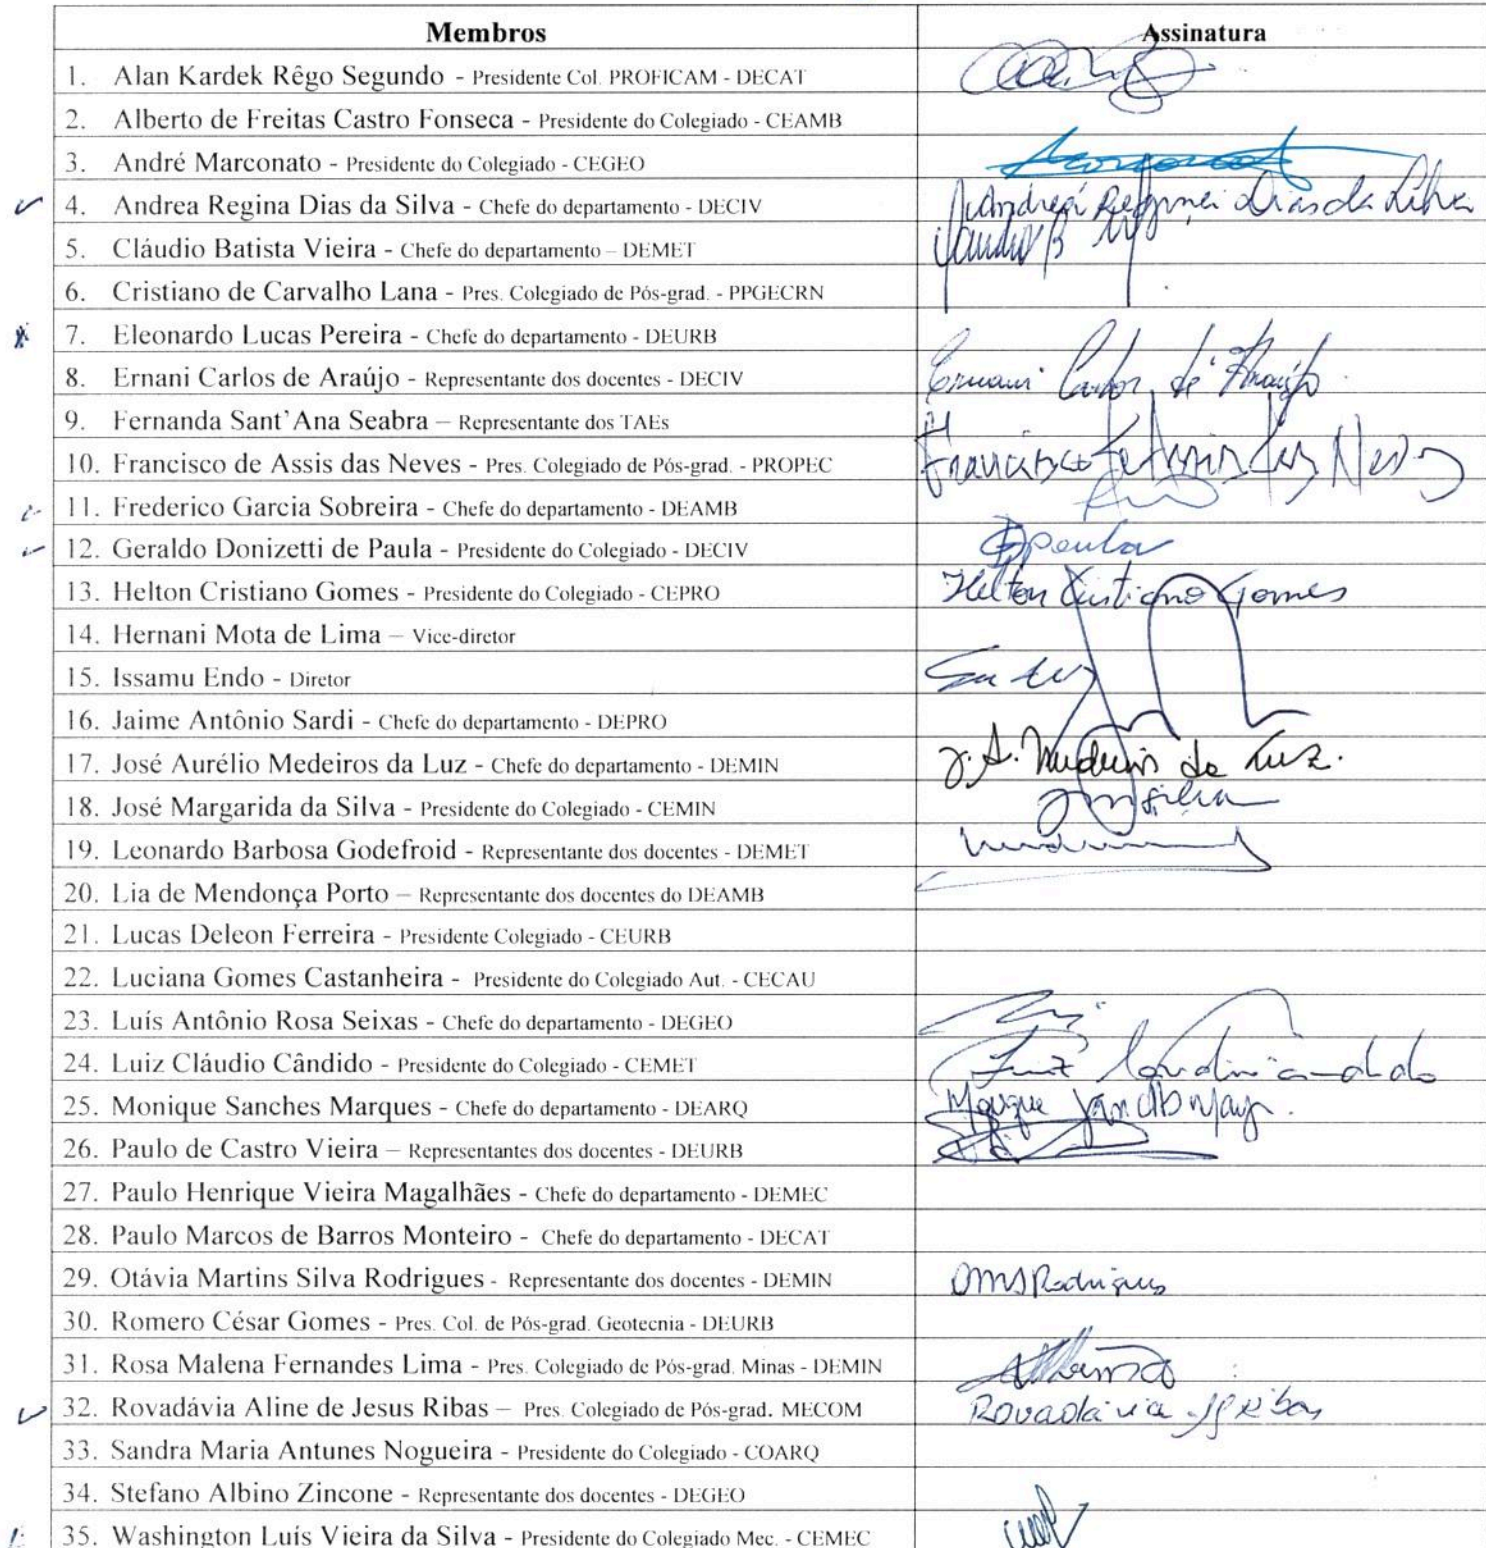 Membros Assinatura
1. Alan Kardek Rêgo Segundo - Presidente Col. PROFICAM - DECAT
2. Alberto de Freitas Castro Fonseca - Presidente do Colegiado - CEAMB
3. André Marconato - Presidente do Colegiado - CEGEO
4. Andrea Regina Dias da Silva - Chefe do departamento - DECIV Andréa Regina Dias da Silva
5. Cláudio Batista Vieira - Chefe do departamento – DEMET
6. Cristiano de Carvalho Lana - Pres. Colegiado de Pós-grad. - PPGECRN
7. Eleonardo Lucas Pereira - Chefe do departamento - DEURB
8. Ernani Carlos de Araújo - Representante dos docentes - DECIV Ernani Carlos de Araújo
9. Fernanda Sant'Ana Seabra – Representante dos TAEs
10. Francisco de Assis das Neves - Pres. Colegiado de Pós-grad. - PROPEC Francisco de Assis das Neves
11. Frederico Garcia Sobreira - Chefe do departamento - DEAMB
12. Geraldo Donizetti de Paula - Presidente do Colegiado - DECIV GDPaula
13. Helton Cristiano Gomes - Presidente do Colegiado - CEPRO Helton Cristiano Gomes
14. Hernani Mota de Lima – Vice-diretor
15. Issamu Endo - Diretor
16. Jaime Antônio Sardi - Chefe do departamento - DEPRO
17. José Aurélio Medeiros da Luz - Chefe do departamento - DEMIN J. A. Medeiros da Luz.
18. José Margarida da Silva - Presidente do Colegiado - CEMIN JMSilva
19. Leonardo Barbosa Godefroid - Representante dos docentes - DEMET
20. Lia de Mendonça Porto – Representante dos docentes do DEAMB
21. Lucas Deleon Ferreira - Presidente Colegiado - CEURB
22. Luciana Gomes Castanheira - Presidente do Colegiado Aut. - CECAU
23. Luís Antônio Rosa Seixas - Chefe do departamento - DEGEO
24. Luiz Cláudio Cândido - Presidente do Colegiado - CEMET Luiz Cláudio Cândido
25. Monique Sanches Marques - Chefe do departamento - DEARQ Monique Sanches Marques
26. Paulo de Castro Vieira – Representantes dos docentes - DEURB
27. Paulo Henrique Vieira Magalhães - Chefe do departamento - DEMEC
28. Paulo Marcos de Barros Monteiro - Chefe do departamento - DECAT
29. Otávia Martins Silva Rodrigues - Representante dos docentes - DEMIN OMSRodrigues
30. Romero César Gomes - Pres. Col. de Pós-grad. Geotecnia - DEURB
31. Rosa Malena Fernandes Lima - Pres. Colegiado de Pós-grad. Minas - DEMIN
32. Rovadávia Aline de Jesus Ribas – Pres. Colegiado de Pós-grad. MECOM Rovadávia Ribas
33. Sandra Maria Antunes Nogueira - Presidente do Colegiado - COARQ
34. Stefano Albino Zincone - Representante dos docentes - DEGEO
35. Washington Luís Vieira da Silva - Presidente do Colegiado Mec. - CEMEC